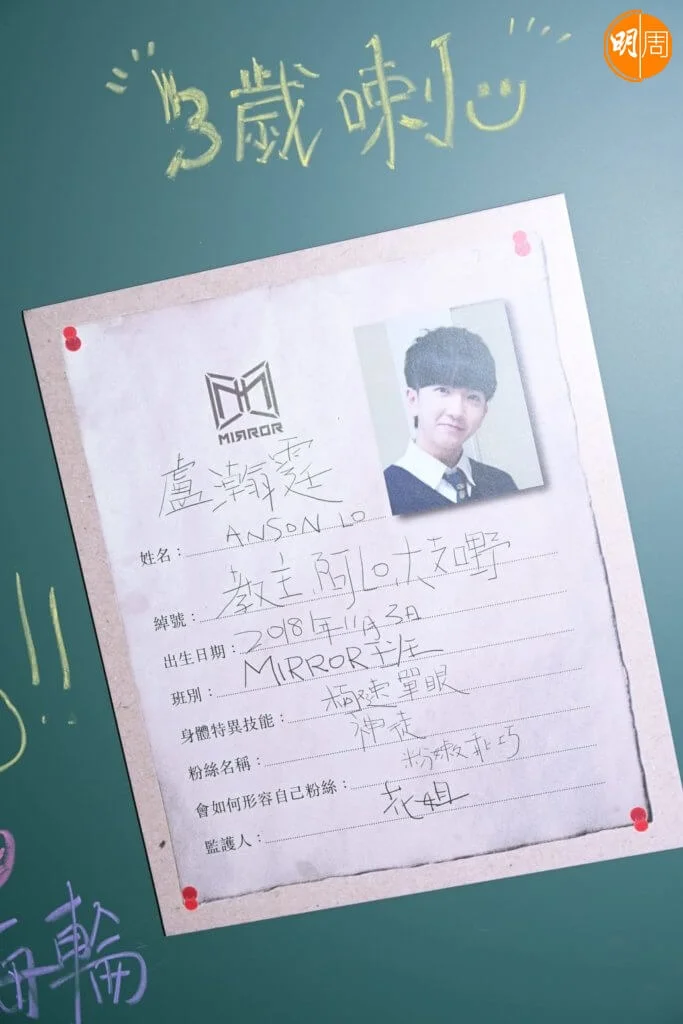 明周
3歲喇
MIRROR
盧瀚霆
姓名：ANSON LO
綽號：教主,阿Lo,大支嘢
出生日期：2018年11月3日
班別：MIRROR班
身體特異技能：極速單眼
粉絲名稱：神徒
會如何形容自己粉絲：粉嫩乖巧
監護人：花姐
!!
輪